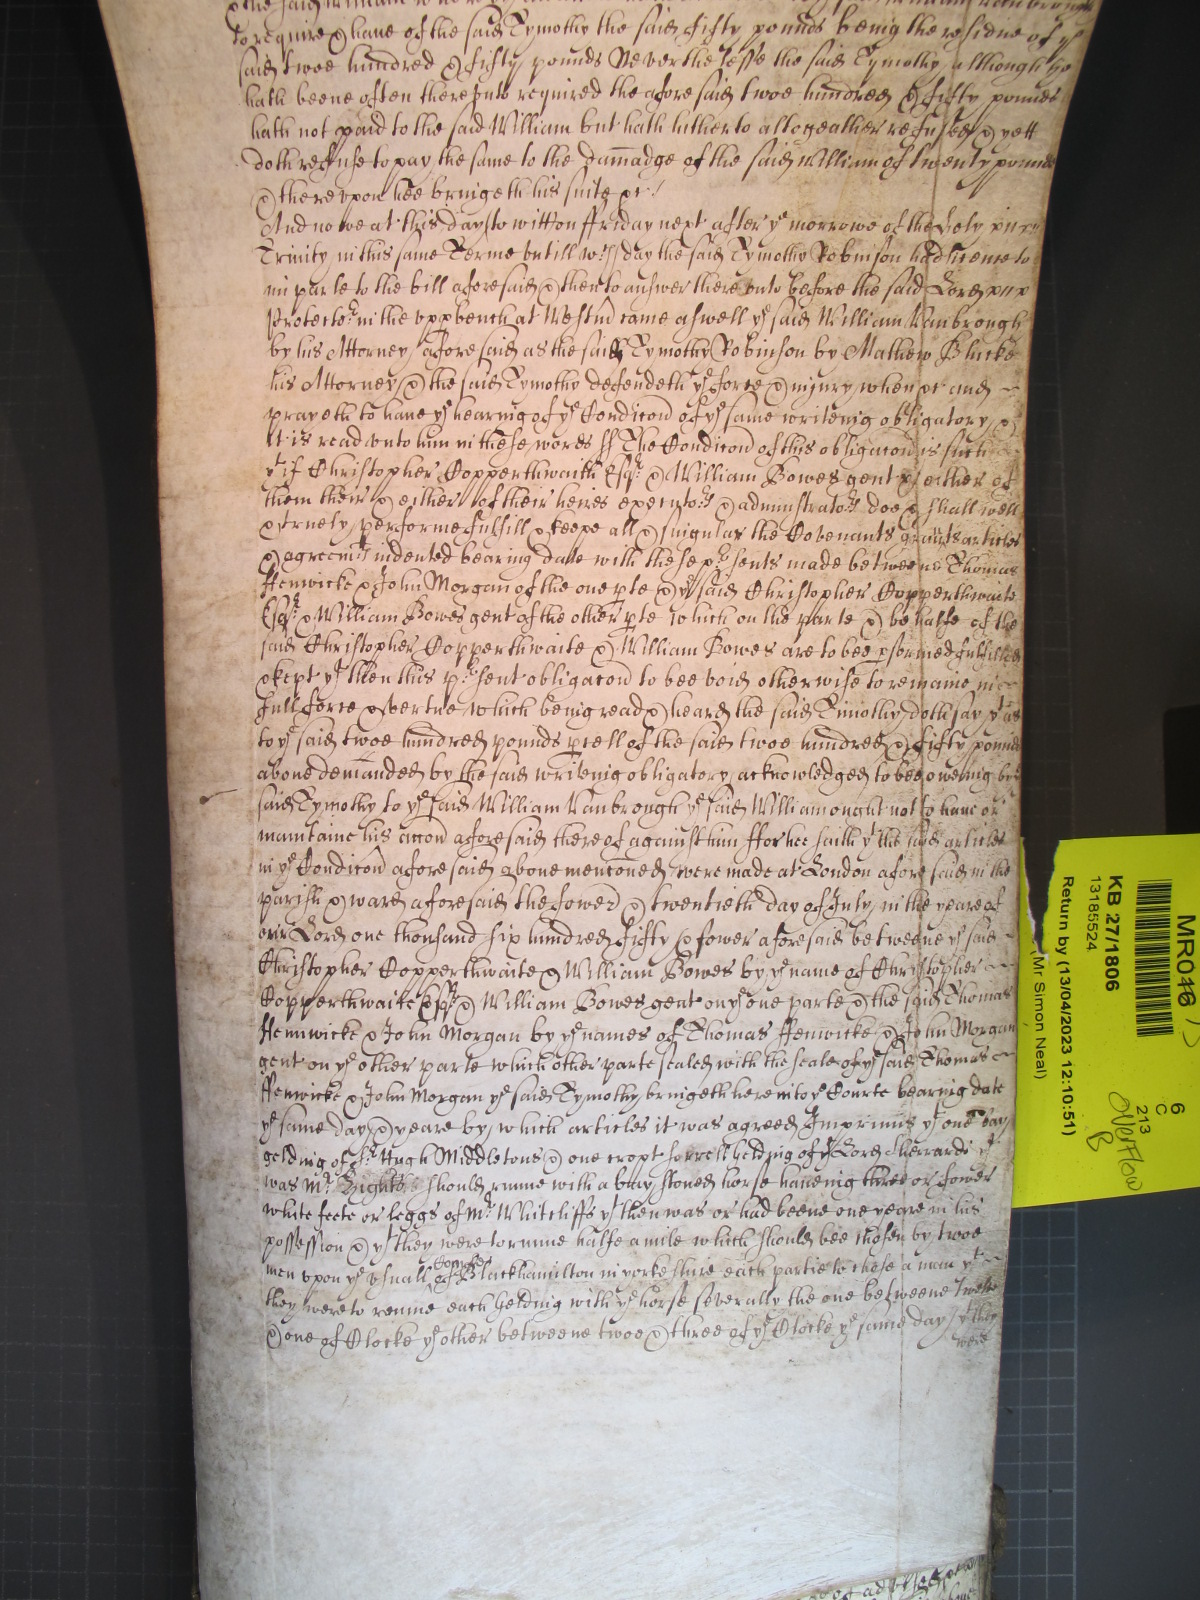 to require & have of the said Tymothy the said fifty pounds being the residue of ye
said twoe hundred & fifty pounds Neverthelesse the said Tymothy although he
hath beene often thereunto required the aforesaid twoe hundred & fifty pounds
hath not paid to the said William but hath hitherto altogeather refused & yett
doth refuse to pay the same to the damadge of the said William of twenty pounds
& thereupon hee bringeth his suite &c
And nowe at this day to witt on ffriday next after ye morrowe of the Holy
Trinity in this same Terme untill wch day the said Tymothy Robinson had licence to
imparle to the bill aforesaid & then to answer thereunto before the said Lord
Protector in the upp bench at Westmr came aswell ye said William Vanbrough
by his Attorney aforesaid as the said Tymothy Robinson by Mathew Blucke
his Attorney & the said Tymothy defendeth ye force & injury when &c and
prayeth to have ye hearing of ye Condicon of ye same writeing obligatory &
it is read unto him in these words ss The Condicon of this obligacon is such
yt if Christopher Copperthwaith Esqr & William Bowes gent & either of
them their & either of their heires executors & administrators doe & shall well
& truely performe fulfill & keepe all & singular the Covenants grants articles
& agreemts indented bearing date with these psents made betweene Thomas
ffenwicke & John Morgan of the one pte & ye said Christopher Copperthwaite
Esqr & William Bowes gent of the other pte which on the parte & behalfe of the
said Christopher Copperthwaite & William Bowes are to bee pformed fulfilled
& kept yt then this psent obligacon to bee void otherwise to remaine in
full force & vertue which being read & heard the said Timothy doth say yt as
to ye said twoe hundred pounds pcell of the said twoe hundred & fifty pounds
above demanded by the said writeing obligatory acknowledged to bee oweing by
said Tymothy to ye said William Vanbrough ye said William ought not to have or
maintaine his accon aforesaid thereof against him ffor hee saith yt the said articles
in ye Condicon aforesaid above menconed were made at London aforesaid in the
parish & ward aforesaid the fower & twentieth day of July in the yeare of
our Lord one thousand six hundred fifty & fower aforesaid betweene ye said
Christopher Copperthwaite & William Bowes by ye name of Christopher
Copperthwaite Esqr & William Bowes gent on ye one parte & the said Thomas
ffenwicke & John Morgan by ye names of Thomas ffenwicke & John Morgan
gent on ye other parte which other parte sealed with the seale of ye said Thomas
ffenwicke & John Morgan ye said Tymothy bringeth here into ye Courte bearing date
ye same day & yeare by which articles it was agreed Imprimis yt one bay
gelding of Sr Hugh Middletons & one cropt sorrell gelding of ye Lord Sherrards yt
was Mr should runne with a bay stoned horse haveing three or fower
white feete or leggs of Mr Whitcliffs yt then was or had beene one yeare in his
possession & yt they were to runne halfe a mile which should bee chosen by twoe
men upon ye usuall Course of Blackhamilton in yorkeshire each partie to chose a man yt
they were to runne each Gelding with ye horse severally the one betweene Twelve
& one of Clocke ye other betweene twoe & three of ye Clocke ye same day yt they
were
MR046
6
C
213
Overflow
B
KB 27/1806
13185524
Return by (13/04/2023 12:10:51)
(Mr Simon Neal)